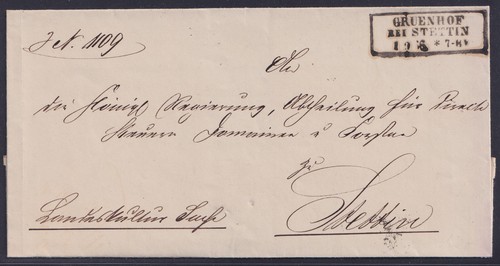 J N. 1109
GRUENHOF
BEI STETTIN
19 8 * 7-8V
An
die Königl Regierung, Abtheilung für Directe
Steuern Domainen u Forsten
zu
Stettin
Landeskultur Sache